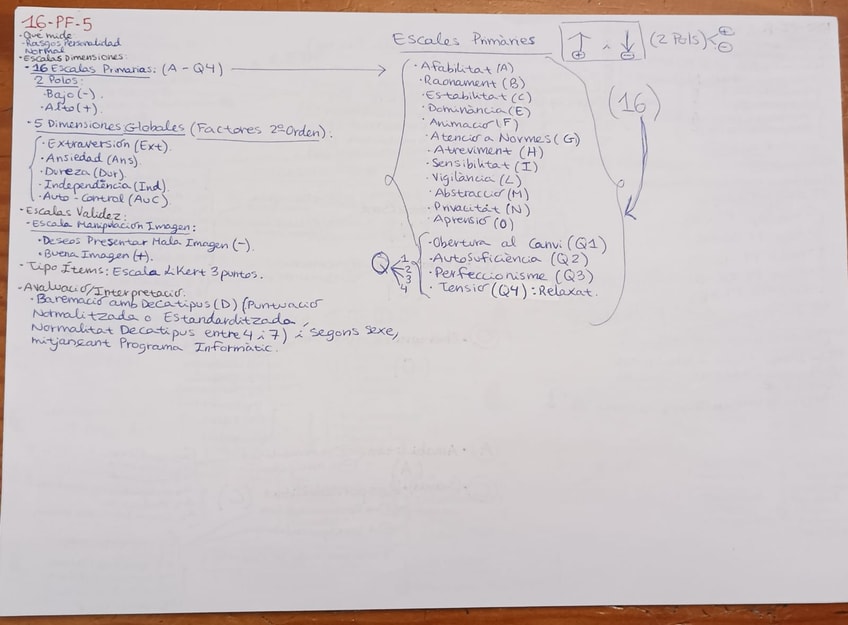 16-PF-5
· Qué mide
· Rasgos Personalidad
Normal
· Escalas Dimensiones:
· 16 Escalas Primarias: (A - Q4)
2 Polos:
· Bajo (-).
· Alto (+).
· 5 Dimensiones Globales (Factores 2º Orden).
· Extraversión (Ext).
· Ansiedad (Ans).
· Dureza (Dur).
· Independência (Ind).
· Auto-Control (AuC)
· Escalas Validez:
· Escala Manipulación Imagen:
· Deseos Presentar Mala Imagen (-).
· Buena Imagen (+).
· Tipo Ítems: Escala Likert 3 puntos.
· Avaluació/Interpretació:
· Baremació amb Decatipus (D) (Puntuació
Normalitzada o Estandarditzada
Normalitat Decatipus entre 4 i 7) i segons sexe,
mitjançant Programa Informàtic.
Escales Primàries
+ i - (2 Pols) + -
(16)
· Afabilitat (A)
· Raonament (B)
· Estabilitat (C)
· Dominància (E)
· Animació (F)
· Atenció a Normes (G)
· Atreviment (H)
· Sensibilitat (I)
· Vigilància (L)
· Abstracció (M)
· Privacitat (N)
· Aprensió (O)
Q 1 2 3 4
· Obertura al Canvi (Q1)
· Autosuficiència (Q2)
· Perfeccionisme (Q3)
· Tensió (Q4) : Relaxat.